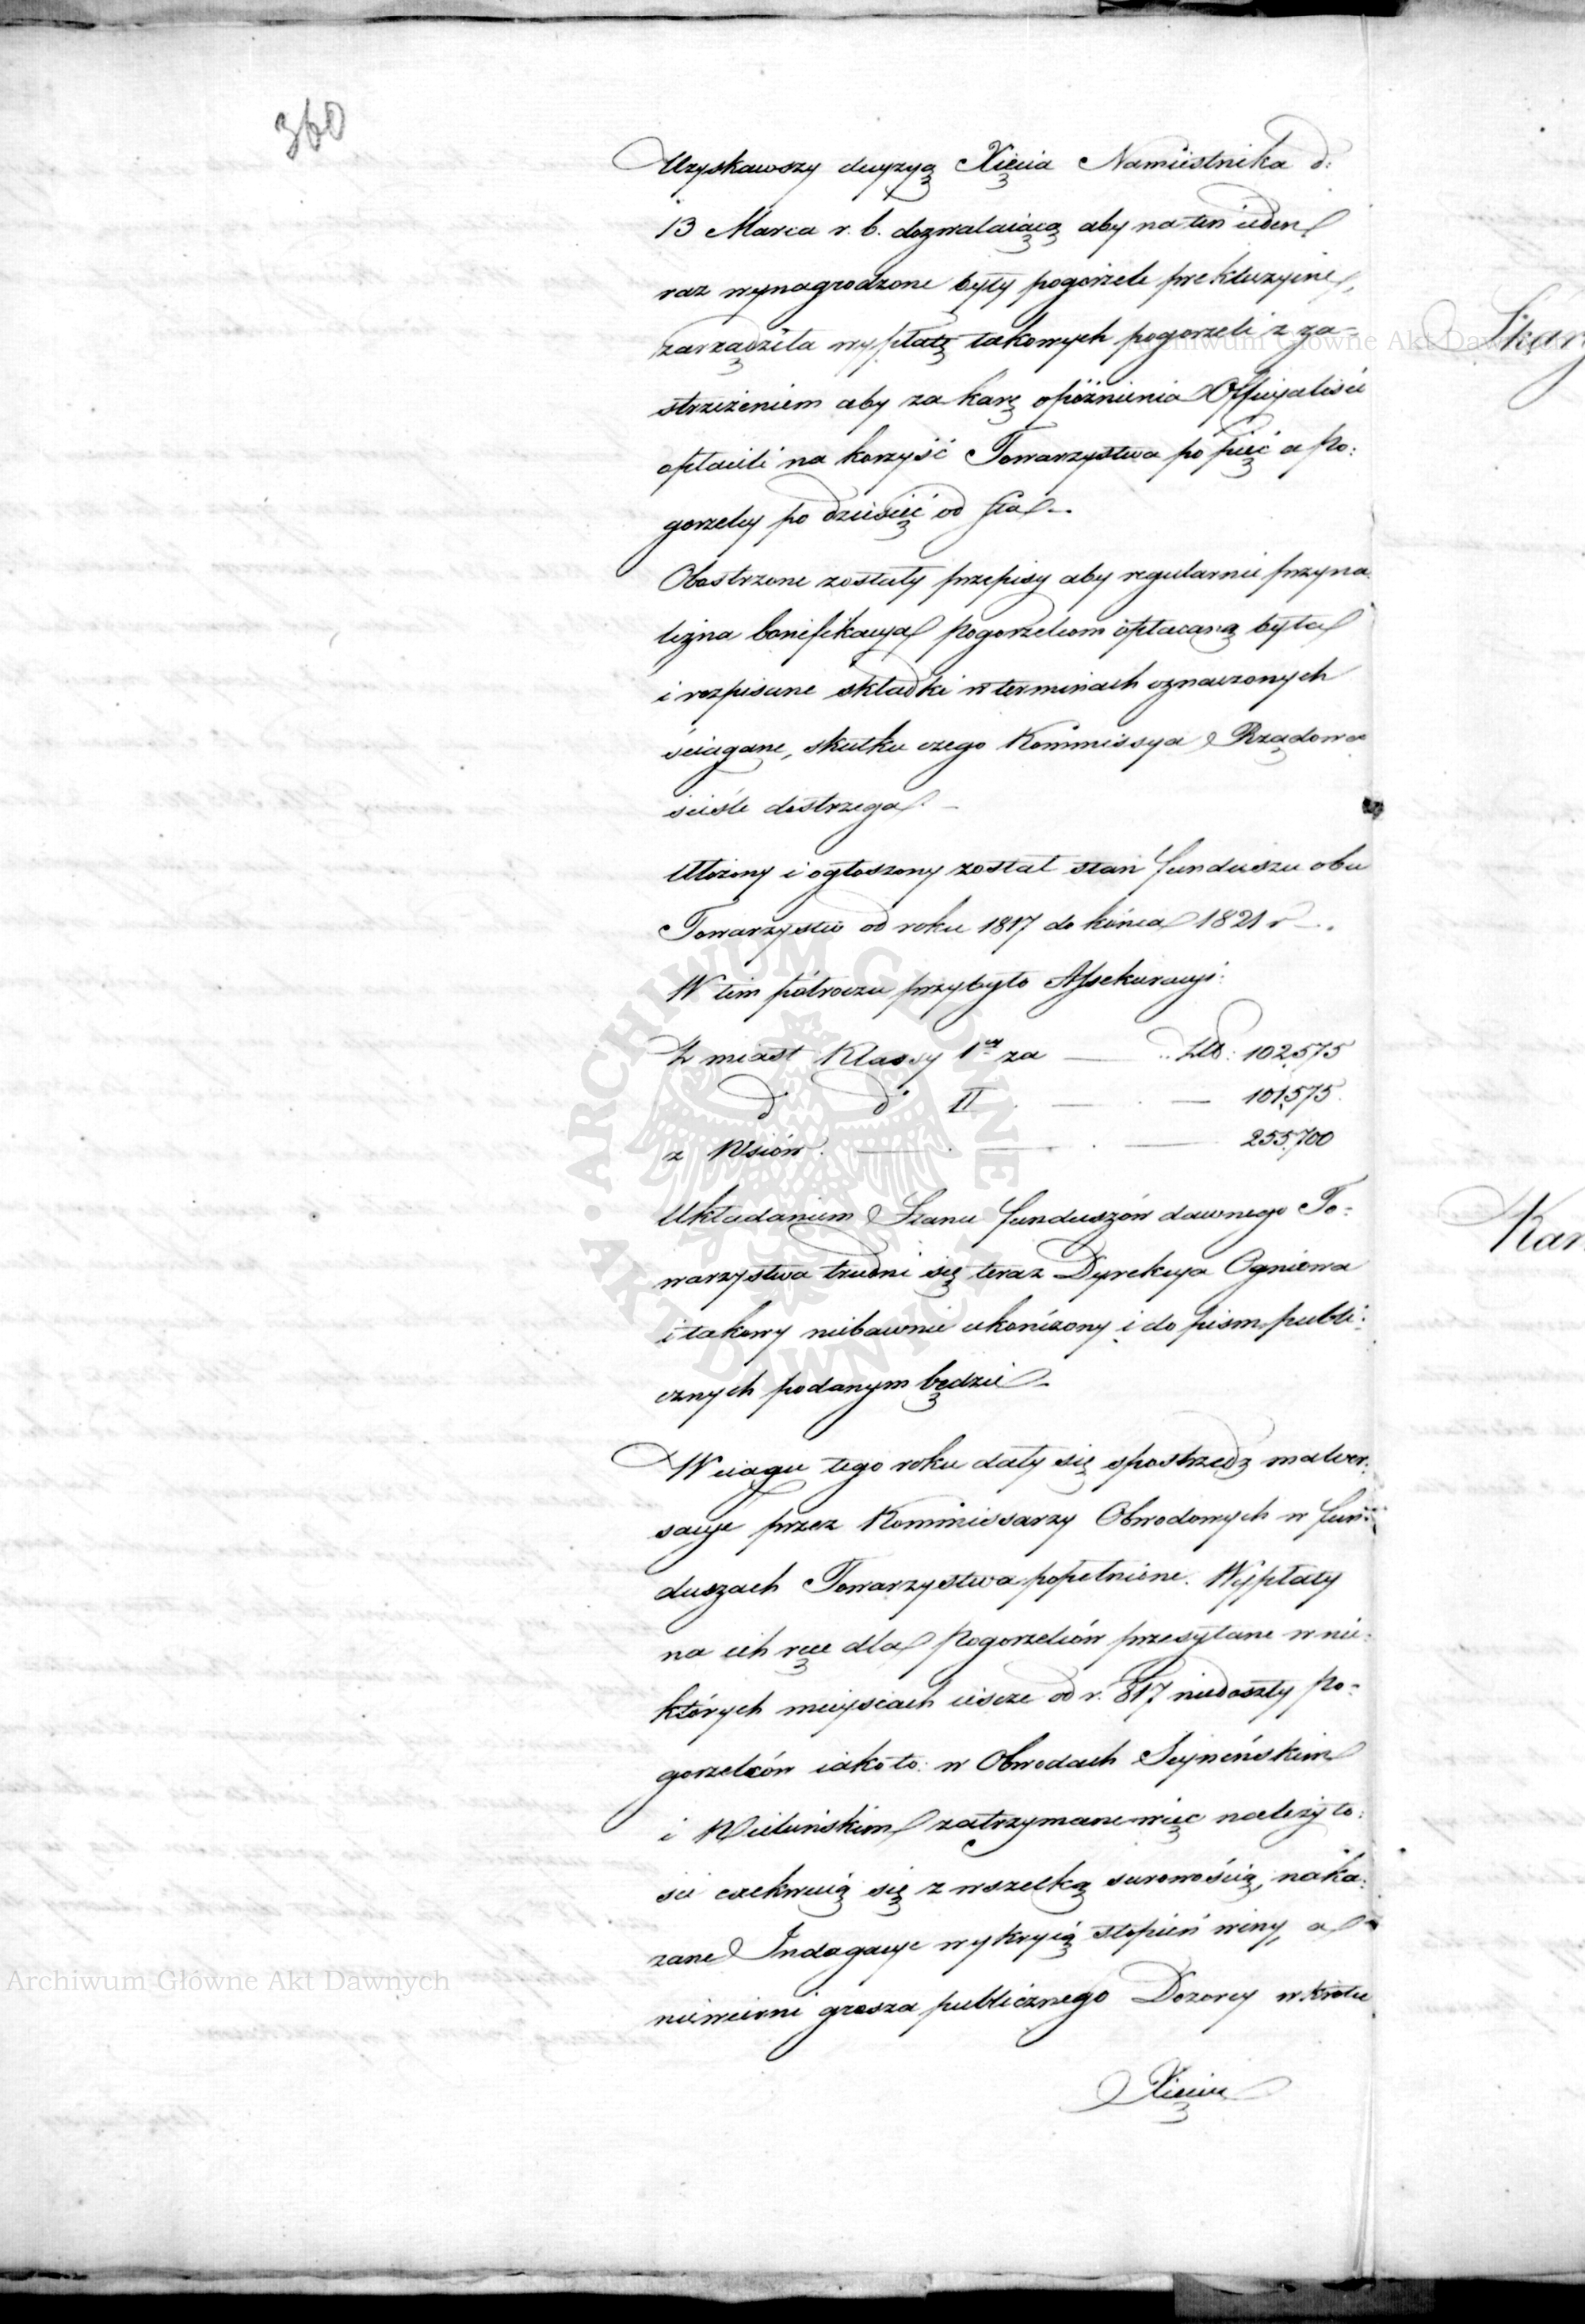 360
Uzyskawszy decyzyą Xięcia Namiestnika d:
13 Marca r. b. dozwalaiącą aby na ten ieden
raz wynagrodzone były pogorzele prekluzyine,
zarządziła wypłatę takowych pogorzeli z za-
strzeżeniem aby za karę opóźnienia Officyaliści
opłacili na korzyść Towarzystwa po pięć a Po:
gorzelcy po dziesięć od sta.
Obostrzone zostały przepisy aby regularnie przyna:
leżna bonifikacya Pogorzelcom opłacaną była
i rozpisane składki w terminach oznaczonych
ściągane, skutku czego Kommissya Rządowa
ściśle dostrzega. -
Ułożony i ogłoszony został stan funduszu obu
Towarzystw od roku 1817 do końca 1821 r -.
W tem półroczu przybyło Assekuracyi:
Z miast Klassy 1ey za — Złt: 102,575
d d° II — 101,575.
z Wsiów. — 255,700
Układaniem Stanu funduszów dawnego To:
warzystwa trudni się teraz Dyrekcya Ogniowa
i takowy niebawnie ukończony i do pism publi:
cznych podanym będzie -
W ciągu tego roku dały się spostrzedz malwer:
sacye przez Kommissarzy Obwodowych w fun:
duszach Towarzystwa popełnione. Wypłaty
na ich ręce dla Pogorzelców przesyłane w nie:
których mieyscach ieszcze od r. 817 niedoszły Po:
gorzelców iako to: w Obwodach Seyneńskim
i Wieluńskim zatrzymane więc należyto:
ści exekwuią się z wszelką surowością, naka:
zane Indagacye wykryią stopień winy, a
niewierni grosza publicznego Dozorcy w krótce
Xięciu
Skar
Kar
Archiwum Główne Akt Dawnych
Archiwum Główne Akt Dawnych
ARCHIWUM GŁÓWNE AKT DAWNYCH